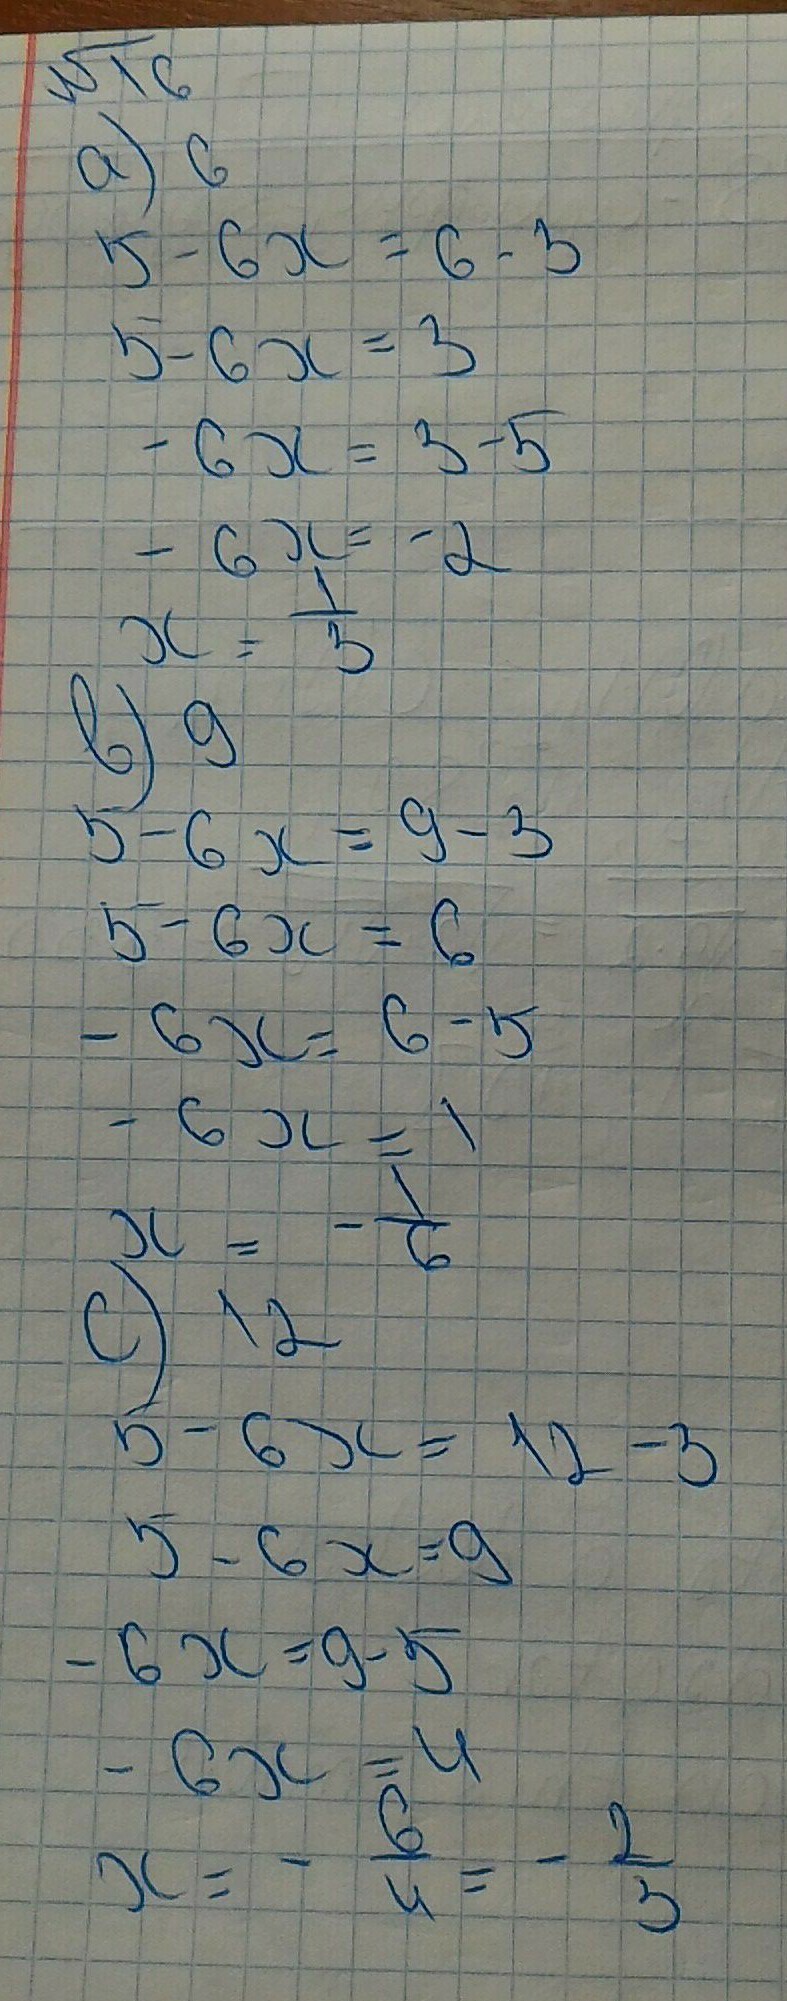 №16
a) 6
5-6x = 6-3
5-6x = 3
-6x = 3-5
-6x = -2
x = 1/3
b) 9
5-6x = 9-3
5-6x = 6
-6x = 6-5
-6x = 1
x = -1/6
c) 12
5-6x = 12-3
5-6x = 9
-6x = 9-5
-6x = 4
x = -6/4 = -2/3